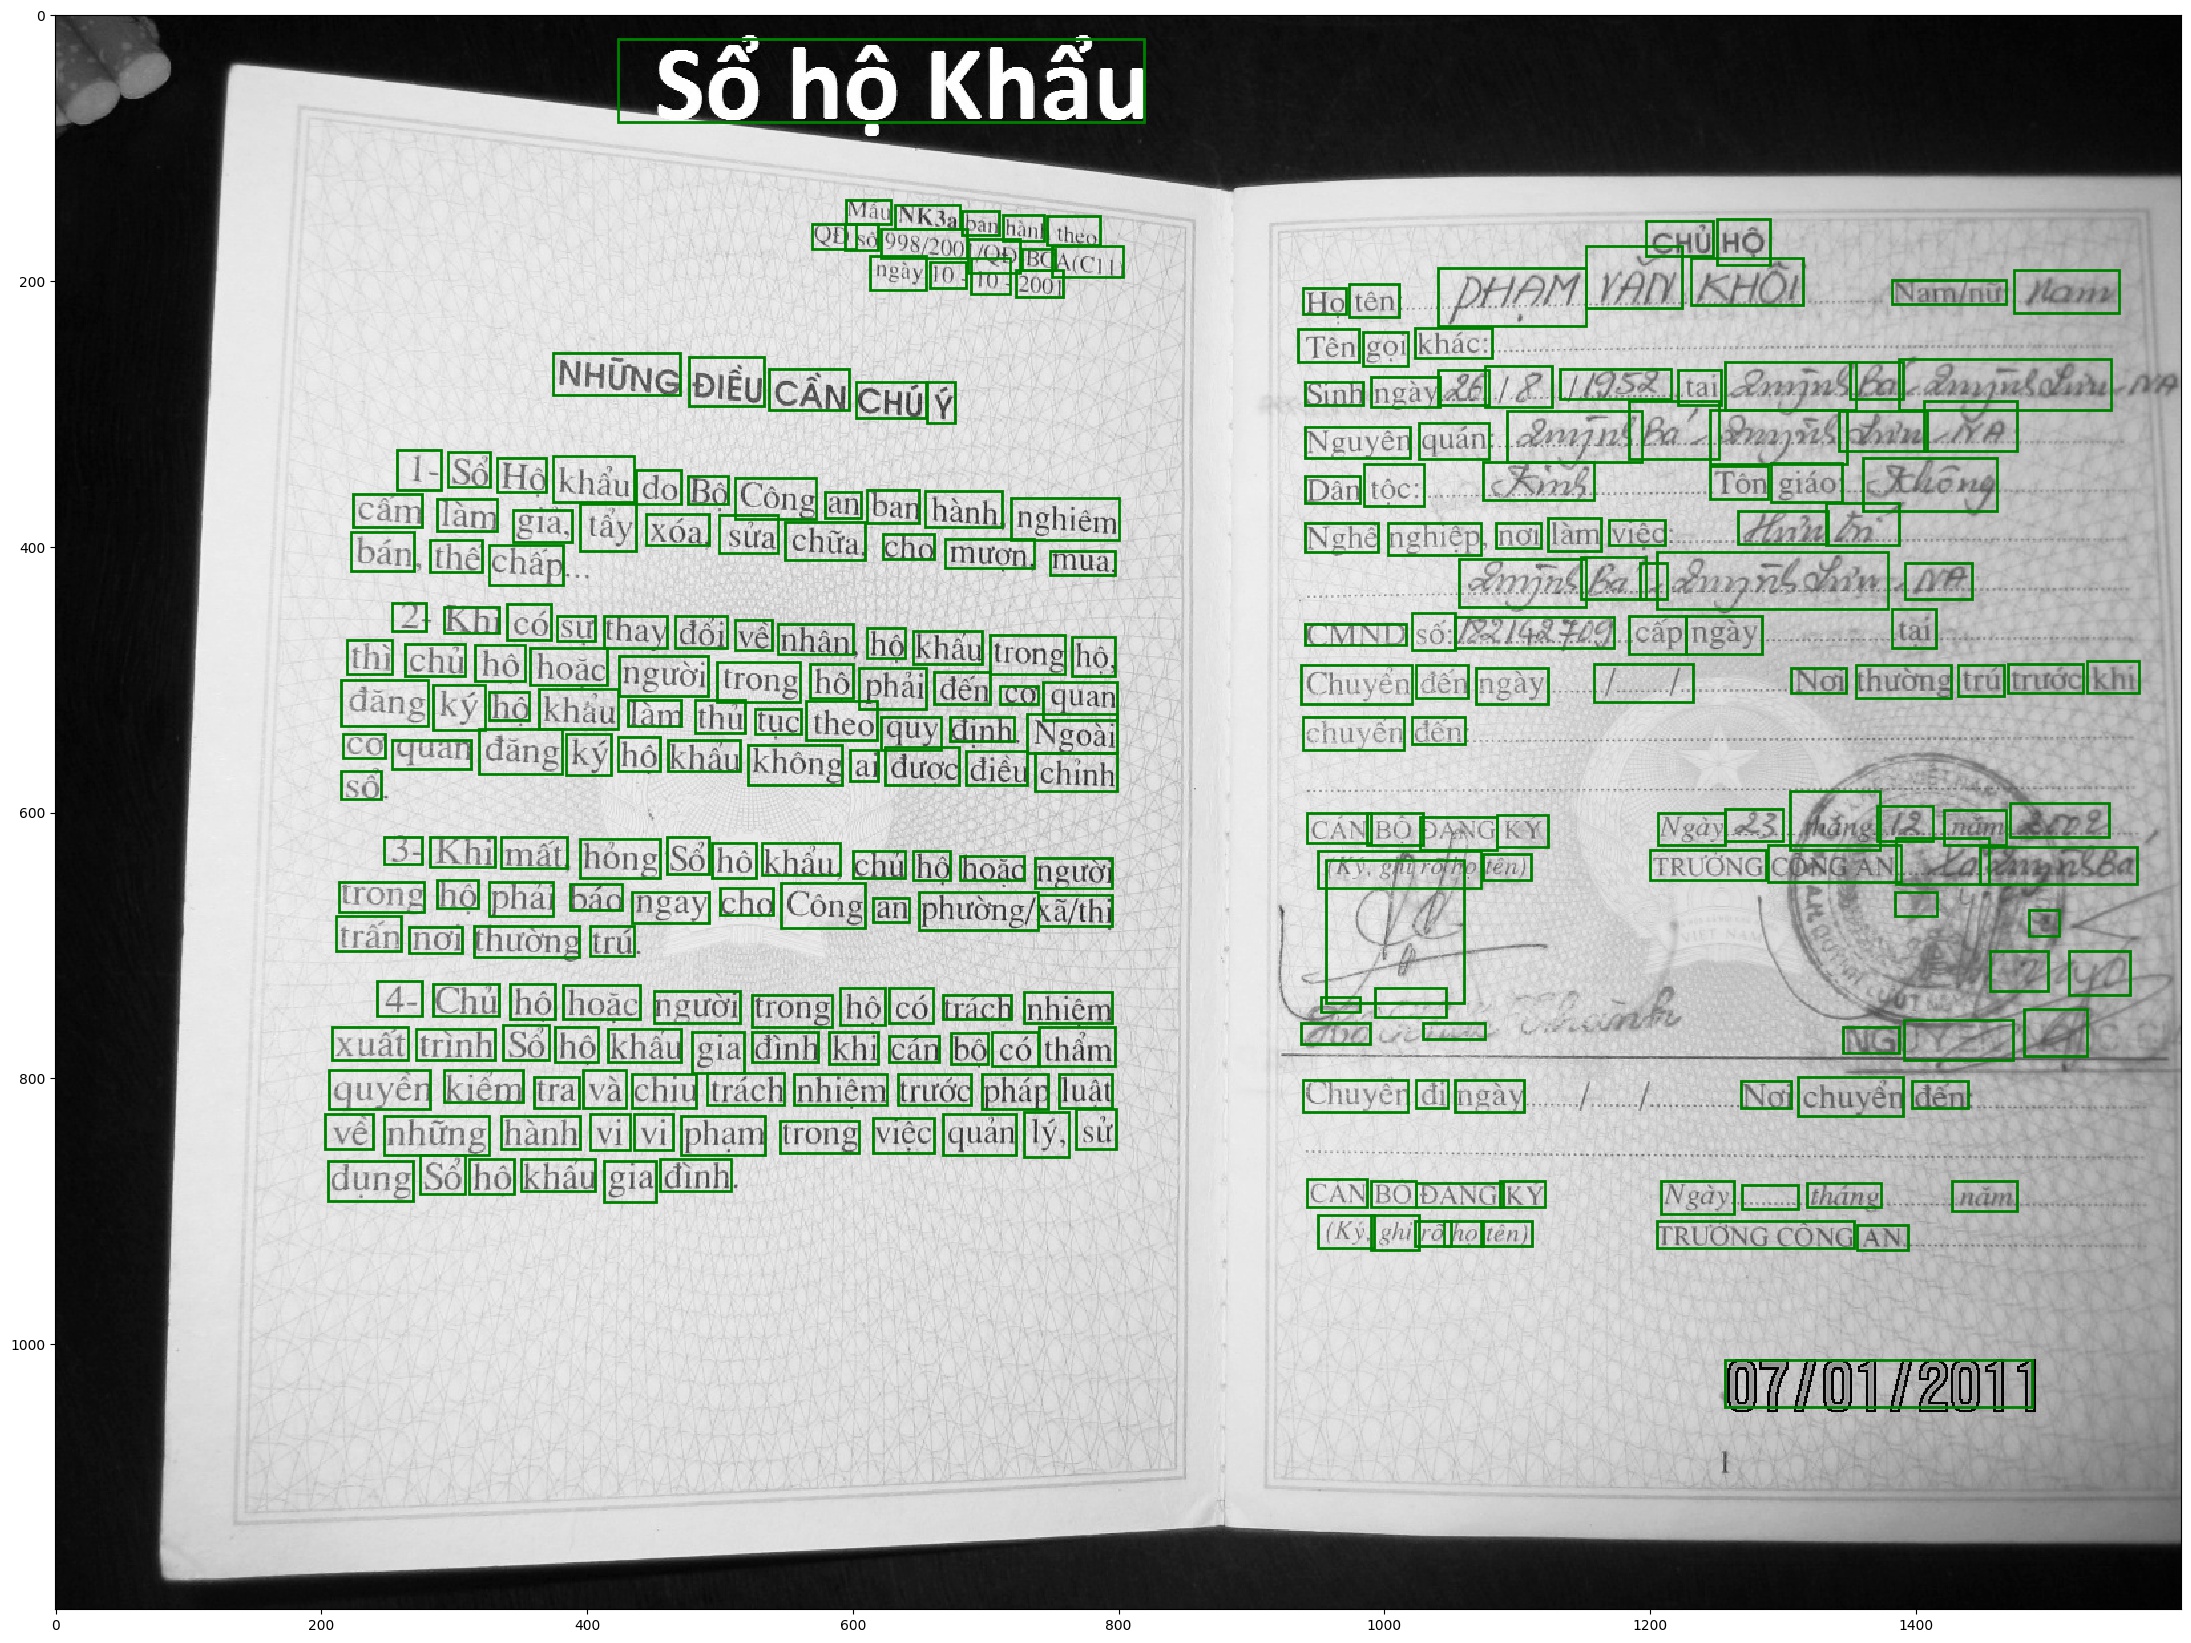 Sổ hộ Khẩu
Mẫu NK3a ban hành theo
QĐ số 998/2001/QĐ-BCA(C11)
ngày 10 - 10 - 2001
NHỮNG ĐIỀU CẦN CHÚ Ý
1- Sổ Hộ khẩu do Bộ Công an ban hành, nghiêm
cấm làm giả, tẩy xóa, sửa chữa, cho mượn, mua,
bán, thế chấp...
2- Khi có sự thay đổi về nhân, hộ khẩu trong hộ,
thì chủ hộ hoặc người trong hộ phải đến cơ quan
đăng ký hộ khẩu làm thủ tục theo quy định. Ngoài
cơ quan đăng ký hộ khẩu không ai được điều chỉnh
sổ.
3- Khi mất, hỏng Sổ hộ khẩu, chủ hộ hoặc người
trong hộ phải báo ngay cho Công an phường/xã/thị
trấn nơi thường trú.
4- Chủ hộ hoặc người trong hộ có trách nhiệm
xuất trình Sổ hộ khẩu gia đình khi cán bộ có thẩm
quyền kiểm tra và chịu trách nhiệm trước pháp luật
về những hành vi vi phạm trong việc quản lý, sử
dụng Sổ hộ khẩu gia đình.
CHỦ HỘ
Họ tên PHẠM VĂN KHÔI Nam/nữ Nam
Tên gọi khác:
Sinh ngày 26 / 8 / 1952 tại Quỳnh Bá - Quỳnh Lưu - NA
Nguyên quán: Quỳnh Bá - Quỳnh Lưu - NA
Dân tộc: Kinh Tôn giáo: Không
Nghề nghiệp, nơi làm việc: Hưu trí
Quỳnh Bá - Quỳnh Lưu - NA
CMND số: 182142709 cấp ngày tại
Chuyển đến ngày / / Nơi thường trú trước khi
chuyển đến:
CÁN BỘ ĐĂNG KÝ
(Ký, ghi rõ họ tên)
Ngày 23 tháng 12 năm 2002
TRƯỞNG CÔNG AN Xã Quỳnh Bá
Thành
Chuyển đi ngày / / Nơi chuyển đến:
CÁN BỘ ĐĂNG KÝ
(Ký, ghi rõ họ tên)
Ngày tháng năm
TRƯỞNG CÔNG AN
07/01/2011
1